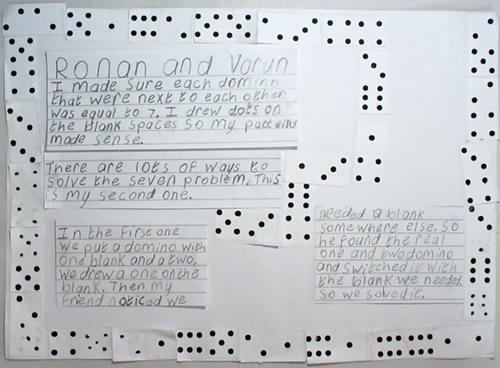 Ronan and Varun
I made sure each domino
that were next to each other
was equal to 7. I drew dots on
the blank spaces so my patterns
made sense.
There are lots of ways to
solve the seven problem. This
is my second one.
In the first one
we put a domino with
one blank and a two.
we drew a one on the
blank. Then my
friend noticed we
needed a blank
some where else. So
he found the real
one and two domino
and switched it with
the blank we needed.
So we solved it.